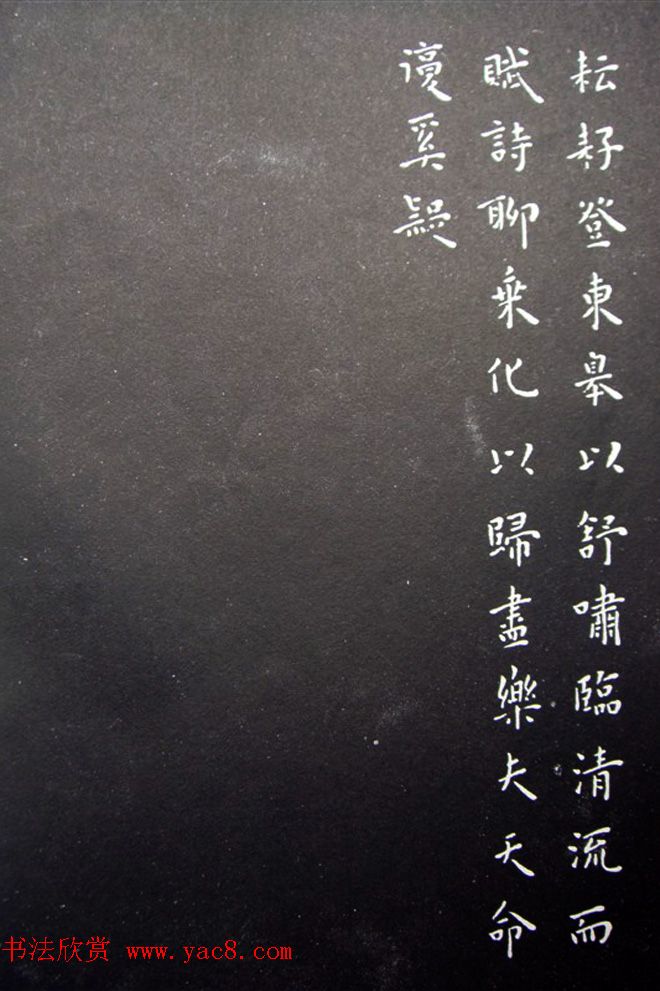 耘耔登東皋以舒嘯臨清流而
賦詩聊乗化以歸盡樂夫天命
復奚疑
书法欣赏 www.yac8.com